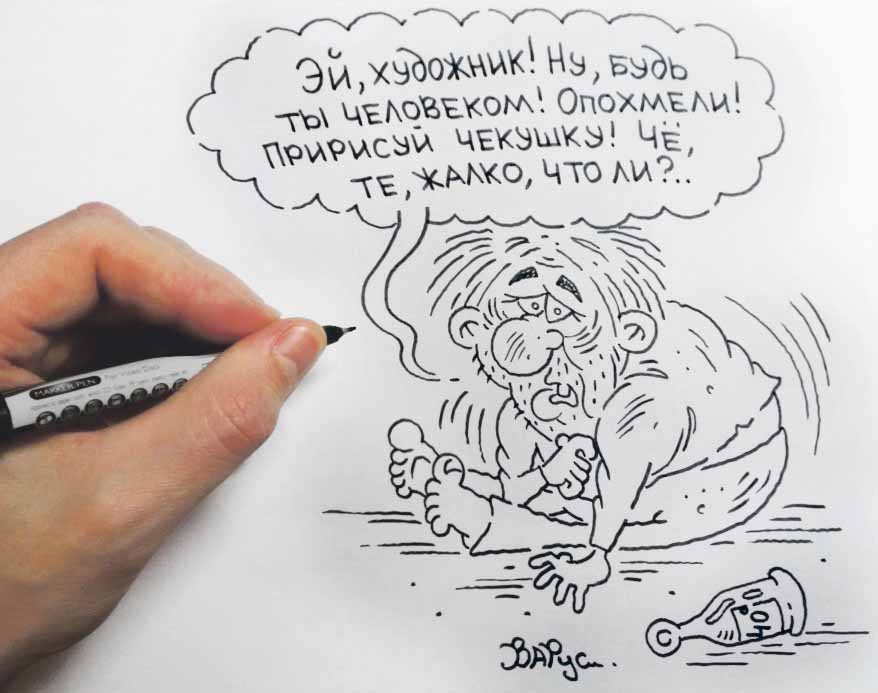 Эй, художник! Ну, будь
ты человеком! Опохмели!
Пририсуй чекушку! Чё,
те, жалко, что ли?..
MARKER PEN